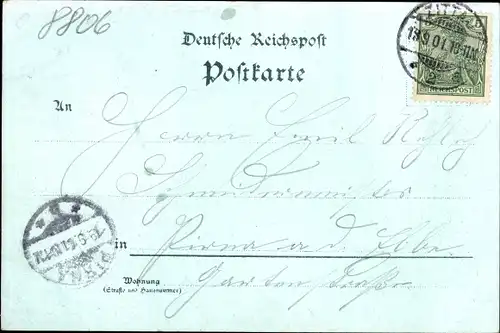 8806
ZITTAU
13.9.01.
REICHSPOST
Deutsche Reichspost
Postkarte
An
Herrn Emil
Schneidermeister
in Pirna a. d. Elbe
Gartenstraße
PIRNA
Wohnung
(Straße und Hausnummer)